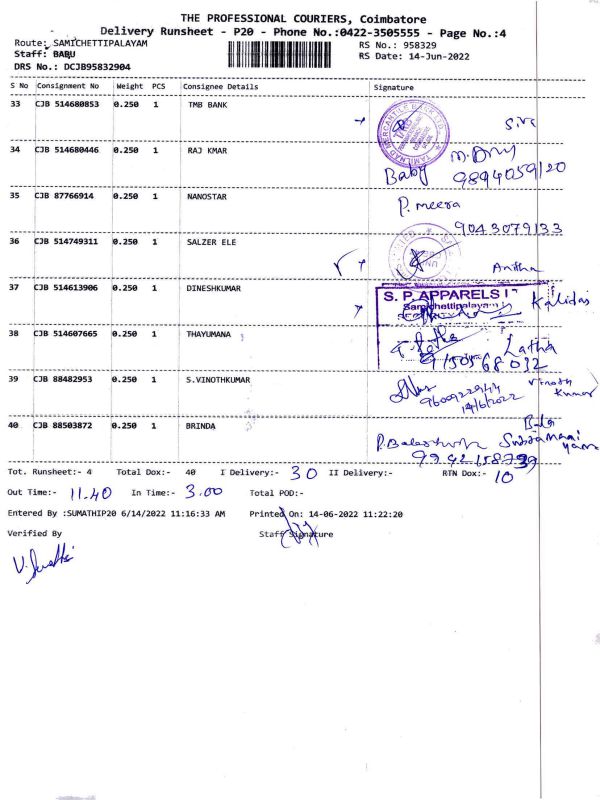 THE PROFESSIONAL COURIERS, Coimbatore
Delivery Runsheet - P20 - Phone No.:0422-3505555 - Page No.:4
Route: SAMICHETTIPALAYAM RS No.: 958329
Staff: BABU RS Date: 14-Jun-2022
DRS No.: DCJB95832904
S No Consignment No Weight PCS Consignee Details Signature
33 CJB 514680853 0.250 1 TMB BANK
TAMILNAD MERCANTILE BANK LTD.
34 CJB 514680446 0.250 1 RAJ KMAR
Baby 9894059120
35 CJB 87766914 0.250 1 NANOSTAR P. meera
9043079133
36 CJB 514749311 0.250 1 SALZER ELE
Anitha
37 CJB 514613906 0.250 1 DINESHKUMAR
S. P. APPARELS
Samichettipalayam
Kalidas
38 CJB 514607665 0.250 1 THAYUMANA
Latha
9150568032
39 CJB 88482953 0.250 1 S.VINOTHKUMAR
9600922944 Vinoth Kumar
14/6/2022
40 CJB 88503872 0.250 1 BRINDA
Bala
9942158739
Tot. Runsheet:- 4 Total Dox:- 40 I Delivery:- 30 II Delivery:- RTN Dox:- 10
Out Time:- 11.40 In Time:- 3.00 Total POD:-
Entered By :SUMATHIP20 6/14/2022 11:16:33 AM Printed On: 14-06-2022 11:22:20
Verified By Staff Signature